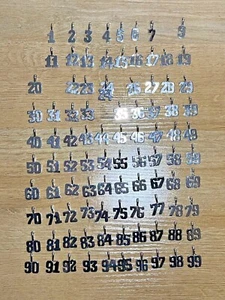 1 2 3 4 5 6 7 9
11 12 13 14 15 16 17 18 19
20 22 23 24 25 26 27 28 29
30 31 32 33 35 36 37 38 39
40 41 42 43 44 45 46 47 48 49
50 51 52 53 54 55 56 57 58 59
60 61 62 63 64 65 66 67 68 69
70 71 72 73 74 75 76 77 78 79
80 81 82 83 84 85 86 87 88 89
90 91 92 93 94 95 96 97 98 99